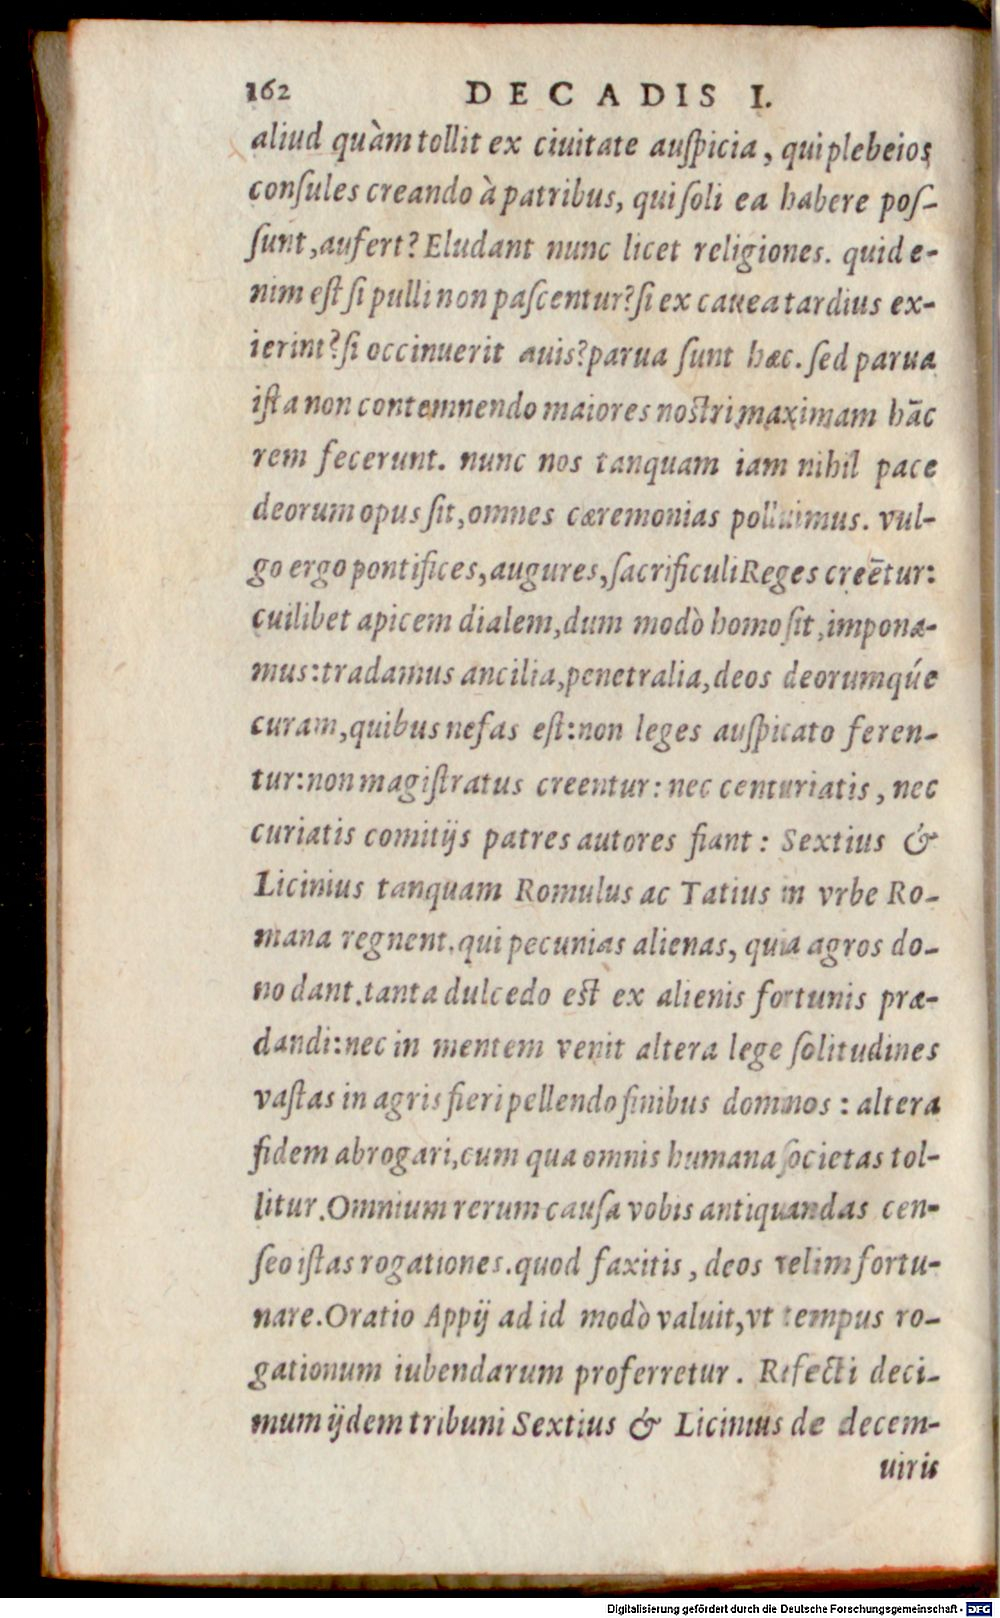 162 DECADIS I.
aliud quàm tollit ex ciuitate auſpicia, qui plebeios
conſules creando à patribus, qui ſoli ea habere poſ-
ſunt, aufert? Eludant nunc licet religiones. quid e-
nim eſt ſi pulli non paſcentur? ſi ex cauea tardius ex-
ierint? ſi occinuerit auis? parua ſunt hæc. ſed parua
iſta non contemnendo maiores noſtri maximam hāc
rem fecerunt. nunc nos tanquam iam nihil pace
deorum opus ſit, omnes cæremonias polluimus. vul-
go ergo pontifices, augures, ſacrificuli Reges creētur:
cuilibet apicem dialem, dum modò homo ſit, impona-
mus: tradamus ancilia, penetralia, deos deorumqúe
curam, quibus nefas eſt: non leges auſpicato feren-
tur: non magiſtratus creentur: nec centuriatis, nec
curiatis comitijs patres autores fiant: Sextius &
Licinius tanquam Romulus ac Tatius in vrbe Ro-
mana regnent. qui pecunias alienas, quia agros do-
no dant. tanta dulcedo eſt ex alienis fortunis præ-
dandi: nec in mentem venit altera lege ſolitudines
vaſtas in agris fieri pellendo finibus dominos: altera
fidem abrogari, cum qua omnis humana ſocietas tol-
litur. Omnium rerum cauſa vobis antiquandas cen-
ſeo iſtas rogationes. quod faxitis, deos velim fortu-
nare. Oratio Appij ad id modò valuit, vt tempus ro-
gationum iubendarum proferretur. Refecti deci-
mum ijdem tribuni Sextius & Licinius de decem-
uiris
Digitalisierung gefördert durch die Deutsche Forschungsgemeinschaft - DFG